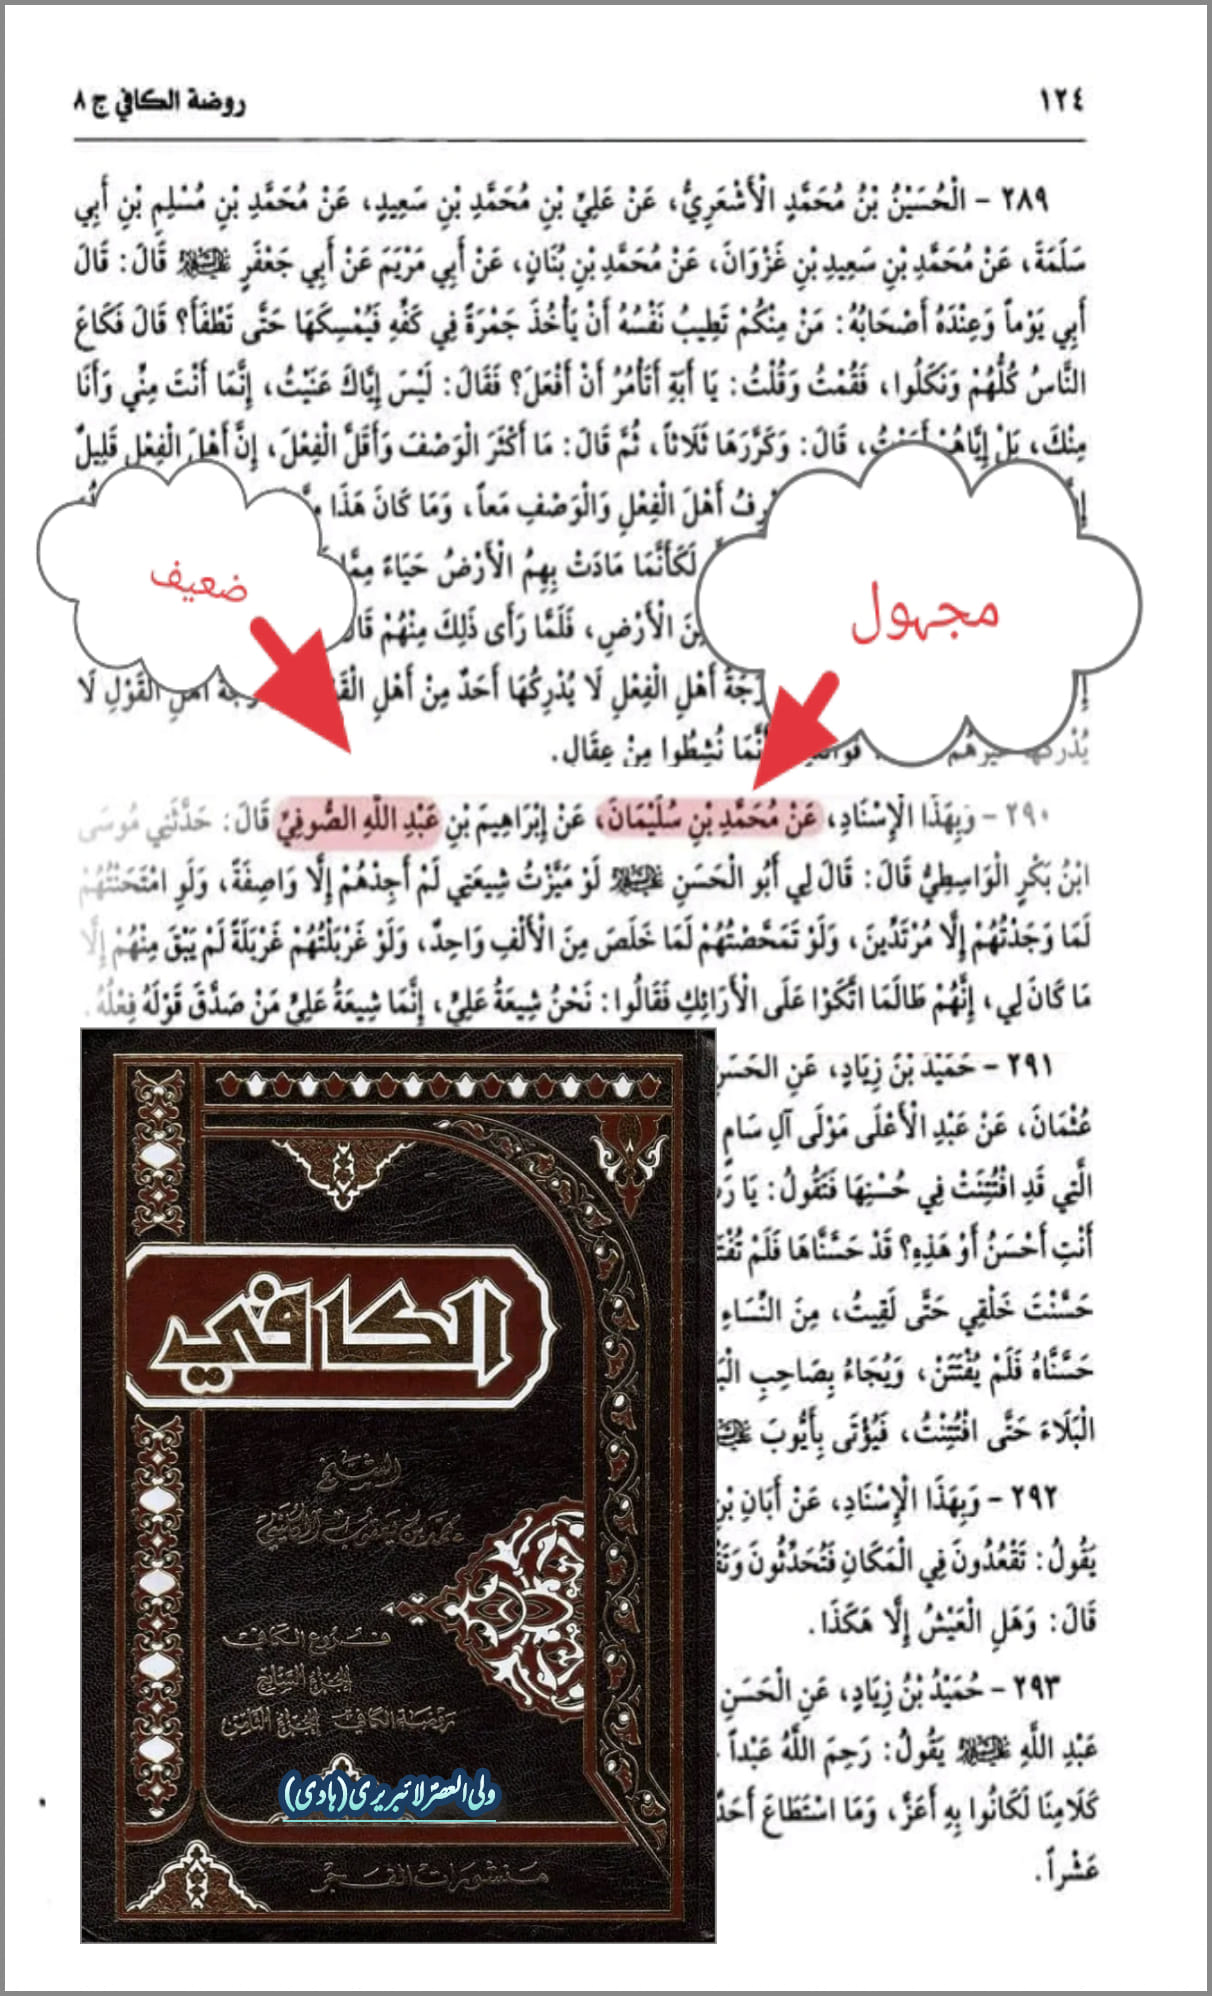 ١٢٤
روضة الكافي ج ٨
٢٨٩ - الْحُسَيْنُ بْنُ مُحَمَّدٍ الْأَشْعَرِيُّ، عَنْ عَلِيِّ بْنِ مُحَمَّدِ بْنِ سَعِيدٍ، عَنْ مُحَمَّدِ بْنِ مُسْلِمِ بْنِ أَبِي
سَلَمَةَ، عَنْ مُحَمَّدِ بْنِ سَعِيدِ بْنِ غَزْوَانَ، عَنْ مُحَمَّدِ بْنِ بُنَانٍ، عَنْ أَبِي مَرْيَمَ عَنْ أَبِي جَعْفَرٍ عَلَيْهِ السَّلَام قَالَ: قَالَ
أَبِي يَوْماً وَعِنْدَهُ أَصْحَابُهُ: مَنْ مِنْكُمْ تَطِيبُ نَفْسُهُ أَنْ يَأْخُذَ جَمْرَةً فِي كَفِّهِ فَيُمْسِكَهَا حَتَّى تَطْفَأَ؟ قَالَ فَكَاعَ
النَّاسُ كُلُّهُمْ وَنَكَلُوا، فَقُمْتُ وَقُلْتُ: يَا أَبَةِ أَتَأْمُرُ أَنْ أَفْعَلَ؟ فَقَالَ: لَيْسَ إِيَّاكَ عَنَيْتُ، إِنَّمَا أَنْتَ مِنِّي وَأَنَا
مِنْكَ، بَلْ إِيَّاهُمْ أَرَدْتُ، قَالَ: وَكَرَّرَهَا ثَلَاثاً، ثُمَّ قَالَ: مَا أَكْثَرَ الْوَصْفَ وَأَقَلَّ الْفِعْلَ، إِنَّ أَهْلَ الْفِعْلِ قَلِيلٌ
أَهْلَ الْفِعْلِ وَالْوَصْفِ مَعاً، وَمَا كَانَ هَذَا
ضعيف
مجهول
لَكَأَنَّمَا مَادَتْ بِهِمُ الْأَرْضُ حَيَاءً
الْأَرْضِ، فَلَمَّا رَأَى ذَلِكَ مِنْهُمْ
أَهْلِ الْفِعْلِ لَا يُدْرِكُهَا أَحَدٌ مِنْ أَهْلِ أَهْلِ الْقَوْلِ لَا
نُشِطُوا مِنْ عِقَالٍ.
٢٩٠ - وَبِهَذَا الْإِسْنَادِ، عَنْ مُحَمَّدِ بْنِ سُلَيْمَانَ، عَنْ إِبْرَاهِيمَ بْنِ عَبْدِ اللَّهِ الصُّوفِيِّ قَالَ: حَدَّثَنِي مُوسَى
ابْنُ بَكْرٍ الْوَاسِطِيُّ قَالَ: قَالَ لِي أَبُو الْحَسَنِ عَلَيْهِ السَّلَام لَوْ مَيَّزْتُ شِيعَتِي لَمْ أَجِدْهُمْ إِلَّا وَاصِفَةً، وَلَوِ امْتَحَنْتُهُمْ
لَمَا وَجَدْتُهُمْ إِلَّا مُرْتَدِّينَ، وَلَوْ تَمَحَّصْتُهُمْ لَمَا خَلَصَ مِنَ الْأَلْفِ وَاحِدٌ، وَلَوْ غَرْبَلْتُهُمْ غَرْبَلَةً لَمْ يَبْقَ مِنْهُمْ إِلَّا
مَا كَانَ لِي، إِنَّهُمْ طَالَمَا اتَّكَوْا عَلَى الْأَرَائِكِ فَقَالُوا: نَحْنُ شِيعَةُ عَلِيٍّ، إِنَّمَا شِيعَةُ عَلِيٍّ مَنْ صَدَّقَ قَوْلَهُ فِعْلُهُ.
٢٩١ - حَمِيْدَ بْنَ زِيَادٍ، عَنِ الْحَسَنِ
عُثْمَانَ، عَنْ عَبْدِ الْأَعْلَى مَوْلَى آلِ سَامٍ
الَّتِي قَدِ افْتُتِنَتْ فِي حُسْنِهَا فَتَقُولُ: يَا
أَنْتِ أَحْسَنُ أَوْ هَذِهِ؟ قَدْ حَسَّنَّاهَا فَلَمْ
حَسَّنْتَ خَلْقِي حَتَّى لَقِيتُ، مِنَ النِّسَاءِ
حَسَّنَّاهُ فَلَمْ يُفْتَتَنْ، وَيُجَاءُ بِصَاحِبِ
الْبَلَاءَ حَتَّى افْتُتِنْتُ، فَيُؤْتَى بِأَيُّوبَ
٢٩٢ - وَبِهَذَا الْإِسْنَادِ، عَنْ أَبَانِ بْنِ
يَقُولُ: تَقْعُدُونَ فِي الْمَكَانِ فَتُحَدِّثُونَ
قَالَ: وَهَلِ الْعَيْشُ إِلَّا هَكَذَا.
٢٩٣ - حُمَيْدُ بْنُ زِيَادٍ، عَنِ الْحَسَنِ
عَبْدِ اللَّهِ عَلَيْهِ السَّلَام يَقُولُ: رَحِمَ اللَّهُ عَبْداً
كَلَامِنَا لَكَانُوا بِهِ أَعَزَّ، وَمَا اسْتَطَاعَ أَحَدٌ
عَشْراً.
الكافي
الشيخ
محمد بن يعقوب الكليني
فروع الكافي
الجزء السابع
روضة الكافي الجزء الثامن
ولی العصرؑ لائبریری (ہادی)
منشورات الفجر